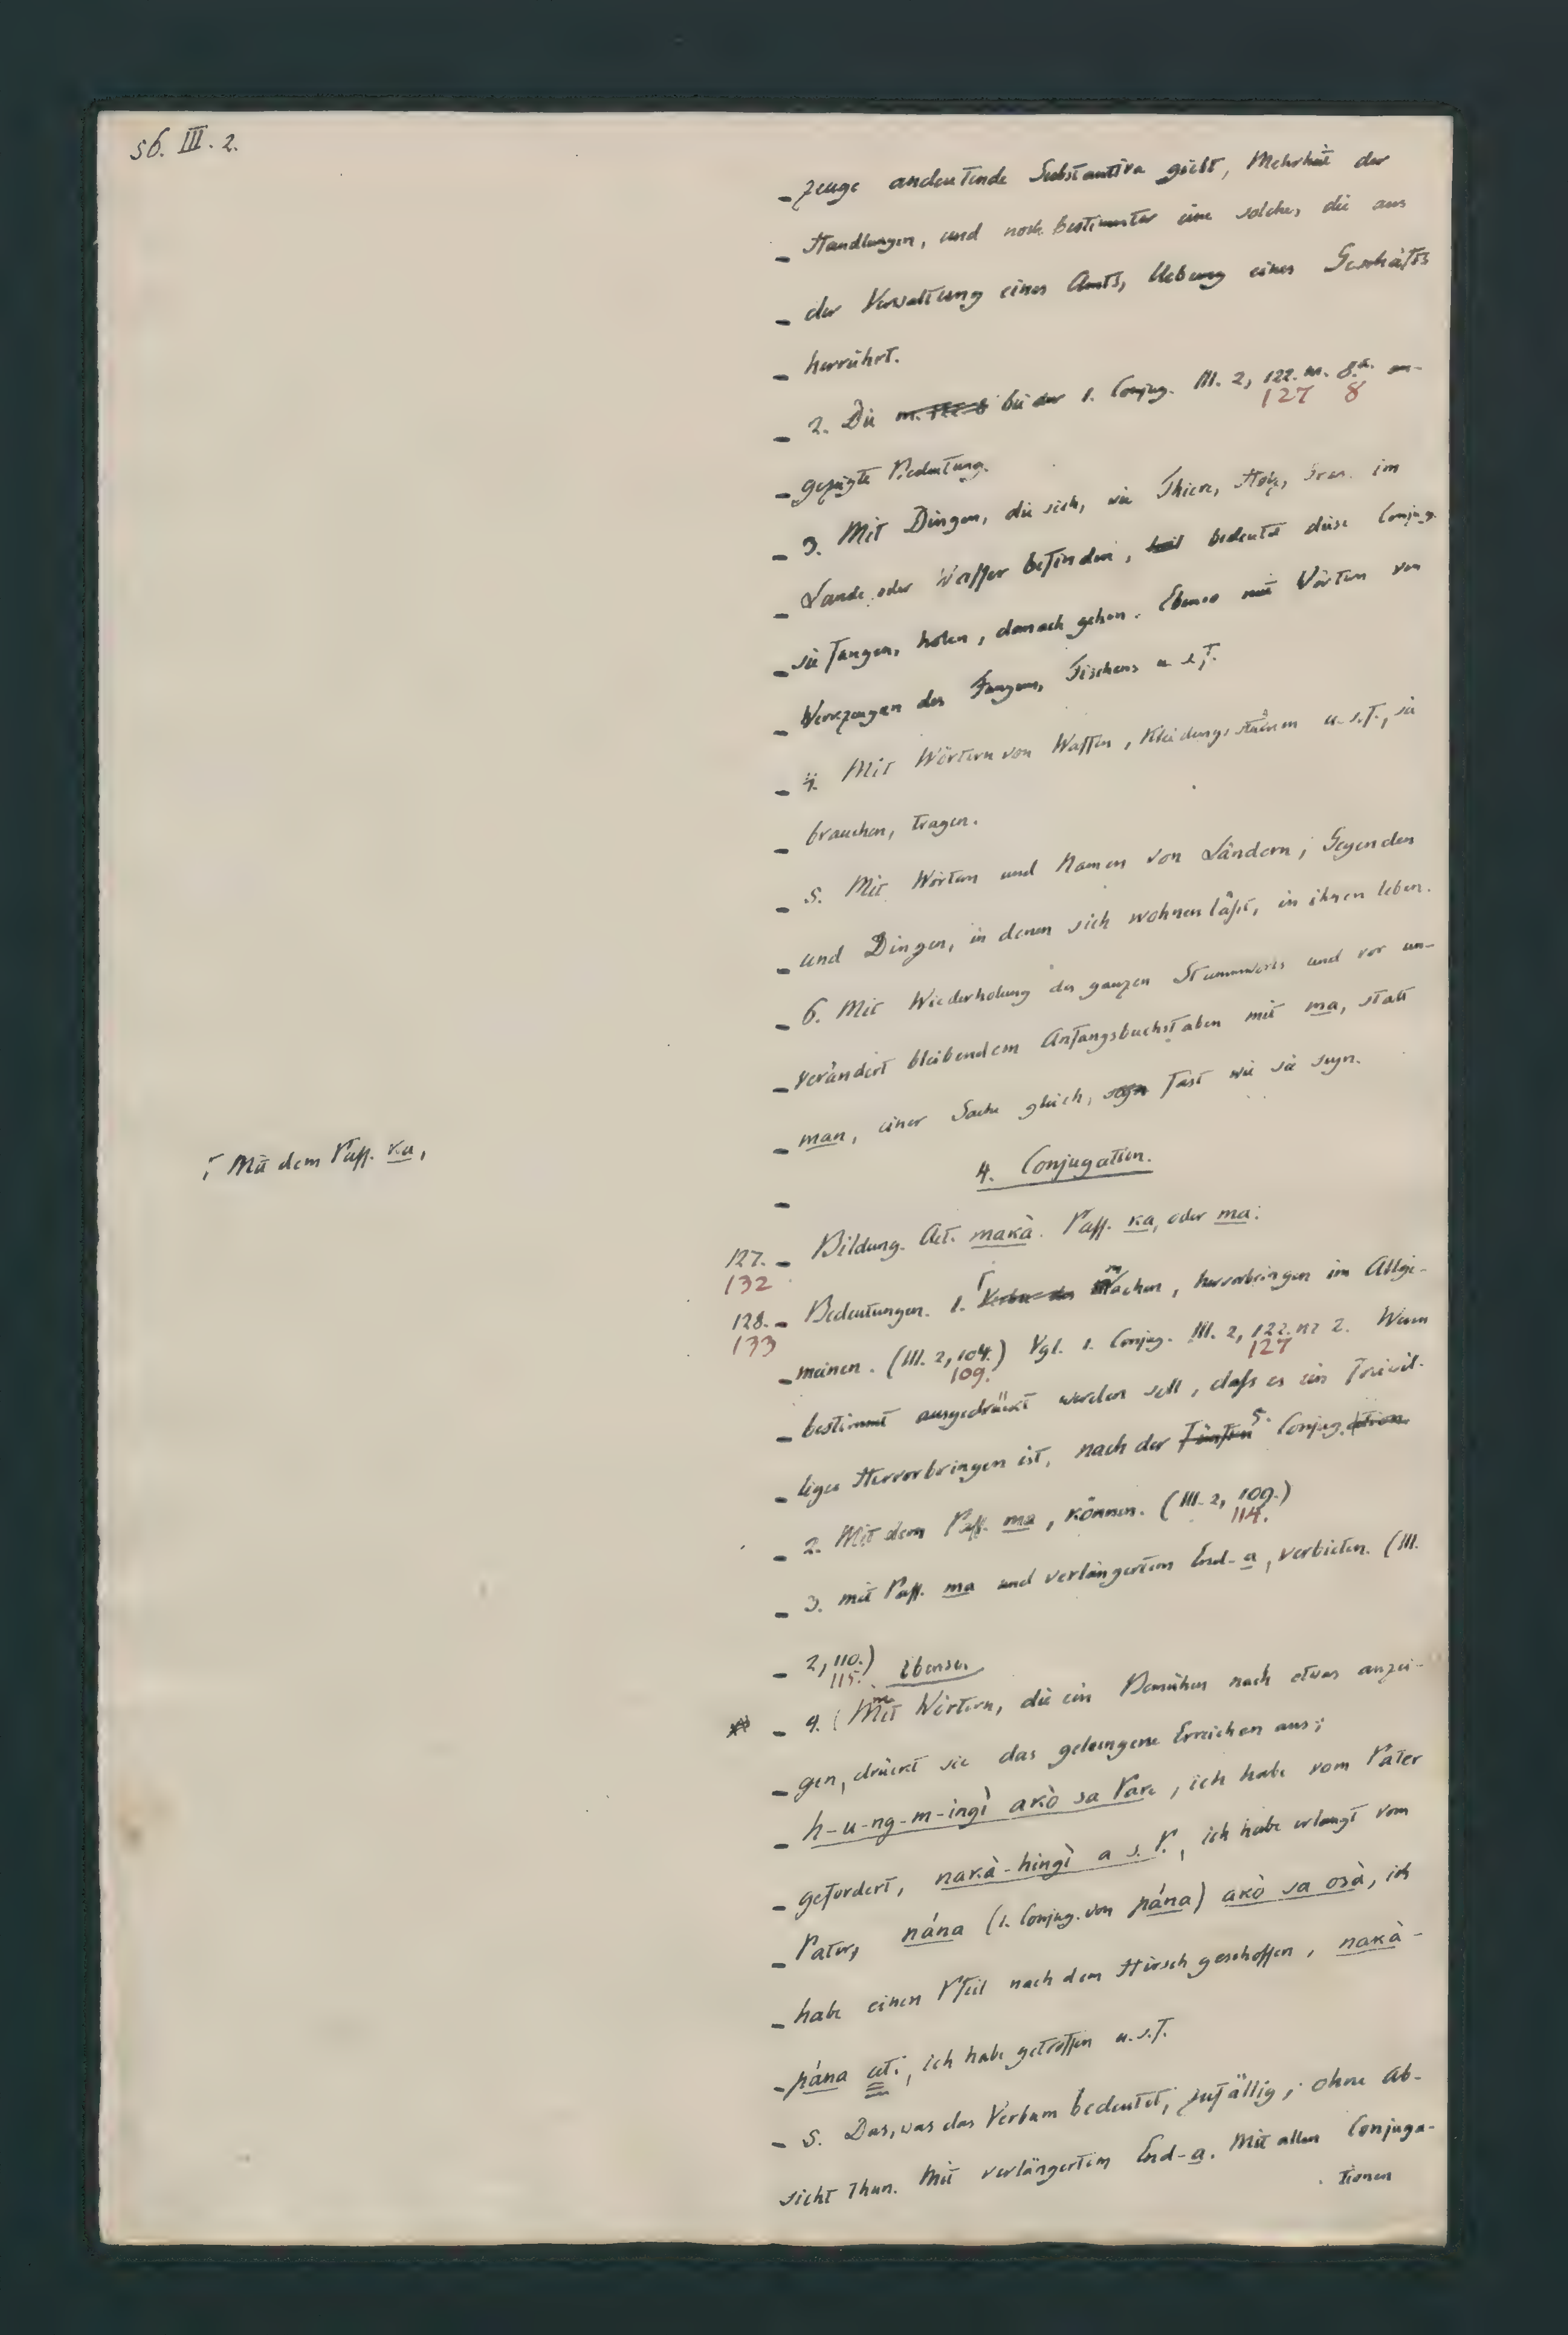 56. III. 2.
zeuge andeutende Substantiva giebt, Mehrheit der
Handlungen, und noch bestimmter eine solche, die aus
der Verwaltung eines Amts, Uebung eines Geschäfts
herrührt.
2. Die bei der 1. Conjug. III. 2, 122. nr. 8.a. an-
127 8
gezeigte Bedeutung.
3. Mit Dingen, die sich, wie Thiere, Holz, Gras im
Lande oder Wasser befinden, bedeutet diese Conjug.
sie fangen, holen, danach gehen. Ebenso mit Wörtern von
Werkzeugen des Fangens, Fischens u. s. f.
4. Mit Wörtern von Waffen, Kleidungsstücken u. s. f., sie
brauchen, tragen.
5. Mit Wörtern und Namen von Ländern, Gegenden
und Dingen, in denen sich wohnen läßt, in ihnen leben.
6. Mit Wiederholung des ganzen Stammworts und vor un-
verändert bleibendem Anfangsbuchstaben mit ma, statt
man, einer Sache gleich, fast wie sie seyn.
4. Conjugation.
Γ Mit dem Paß. ka,
127. Bildung. Act. makà. Paß. ka, oder ma.
132
128. Bedeutungen. 1. Γ machen, hervorbringen im Allge-
133
meinen. (III. 2, 104.) Vgl. 1. Conjug. III. 2, 122. nr. 2. Wenn
109. 127
bestimmt ausgedrückt werden soll, daß es ein freiwil-
liges Hervorbringen ist, nach der 5. Conjug.
2. Mit dem Paß. ma, können. (III. 2, 109.)
114.
3. mit Paß. ma und verlängertem End-a, verbieten. (III.
2, 110.) Ebenso.
115.
4. mit Wörtern, die ein Bemühen nach etwas anzei-
gen, drückt sie das gelungene Erreichen aus;
h-u-ng-m-ingì akò sa Pare, ich habe vom Pater
gefordert, nakà-hingì a s. P., ich habe erlangt vom
Pater, nána (1. Conjug. von pána) akò sa osà, ich
habe einen Pfeil nach dem Hirsch geschossen, nakà-
pána etc., ich habe getroffen u. s. f.
5. Das, was das Verbum bedeutet, zufällig, ohne Ab-
sicht thun. Mit verlängertem End-a. Mit allen Conjuga-
tionen